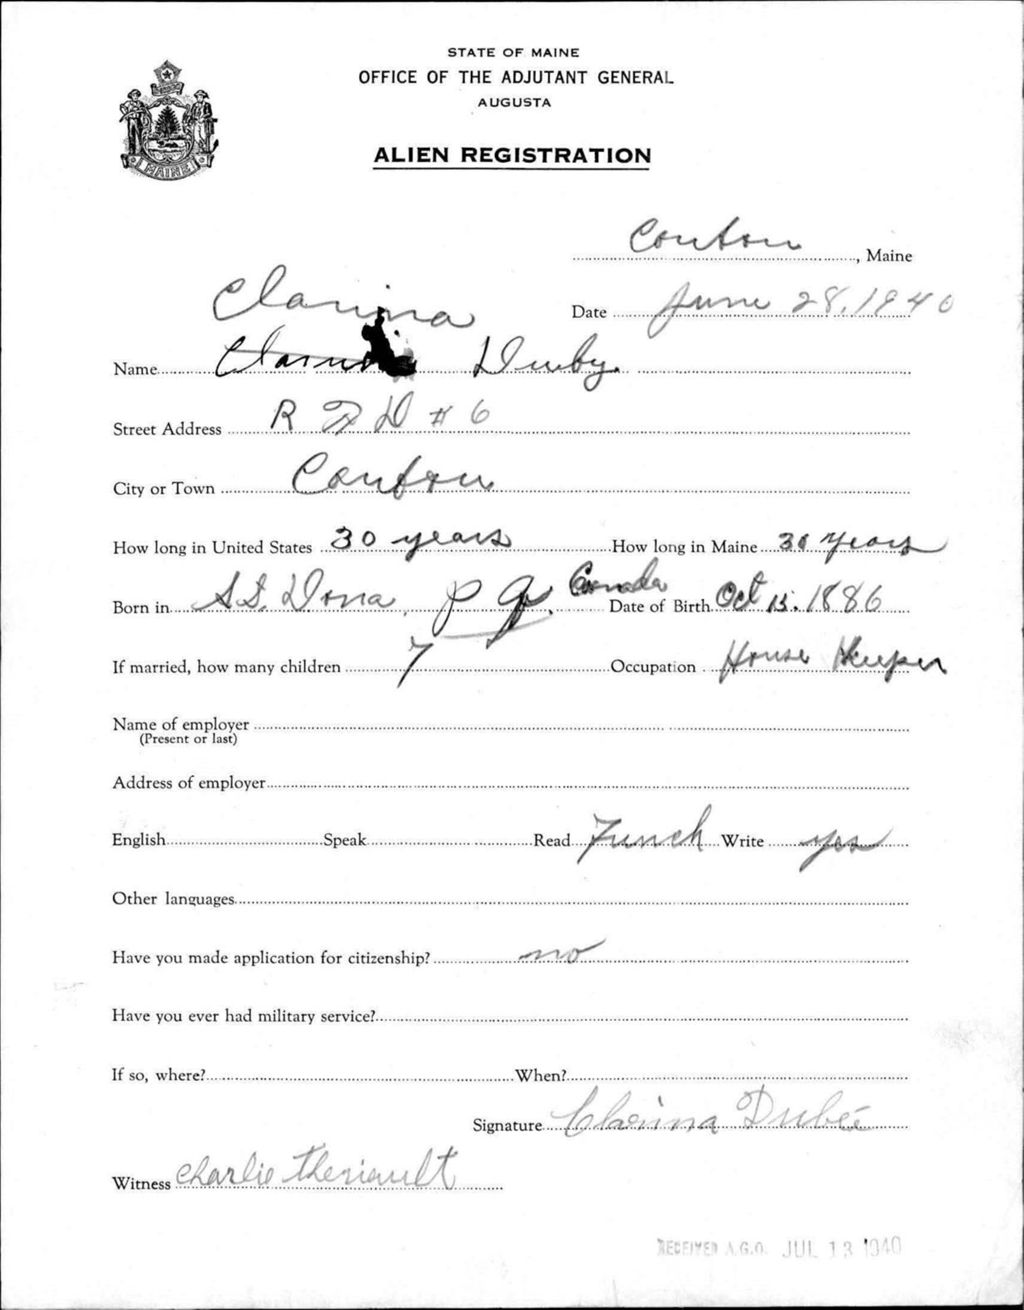 STATE OF MAINE
OFFICE OF THE ADJUTANT GENERAL
AUGUSTA
ALIEN REGISTRATION
MAINE
, Maine
Clarina
Date June 28, 1940
Name
Street Address R F D # 6
City or Town
How long in United States 30 years How long in Maine 30 years
Born in St. Dona P Q. Canada Date of Birth Oct 15. 1886
If married, how many children 7 Occupation House Keeper
Name of employer
(Present or last)
Address of employer
English Speak Read French Write yes
Other languages
Have you made application for citizenship? no
Have you ever had military service?
If so, where? When?
Signature Clarina Dubée
Witness Charlie Theriault
RECEIVED A.G.O. JUL 13 1940